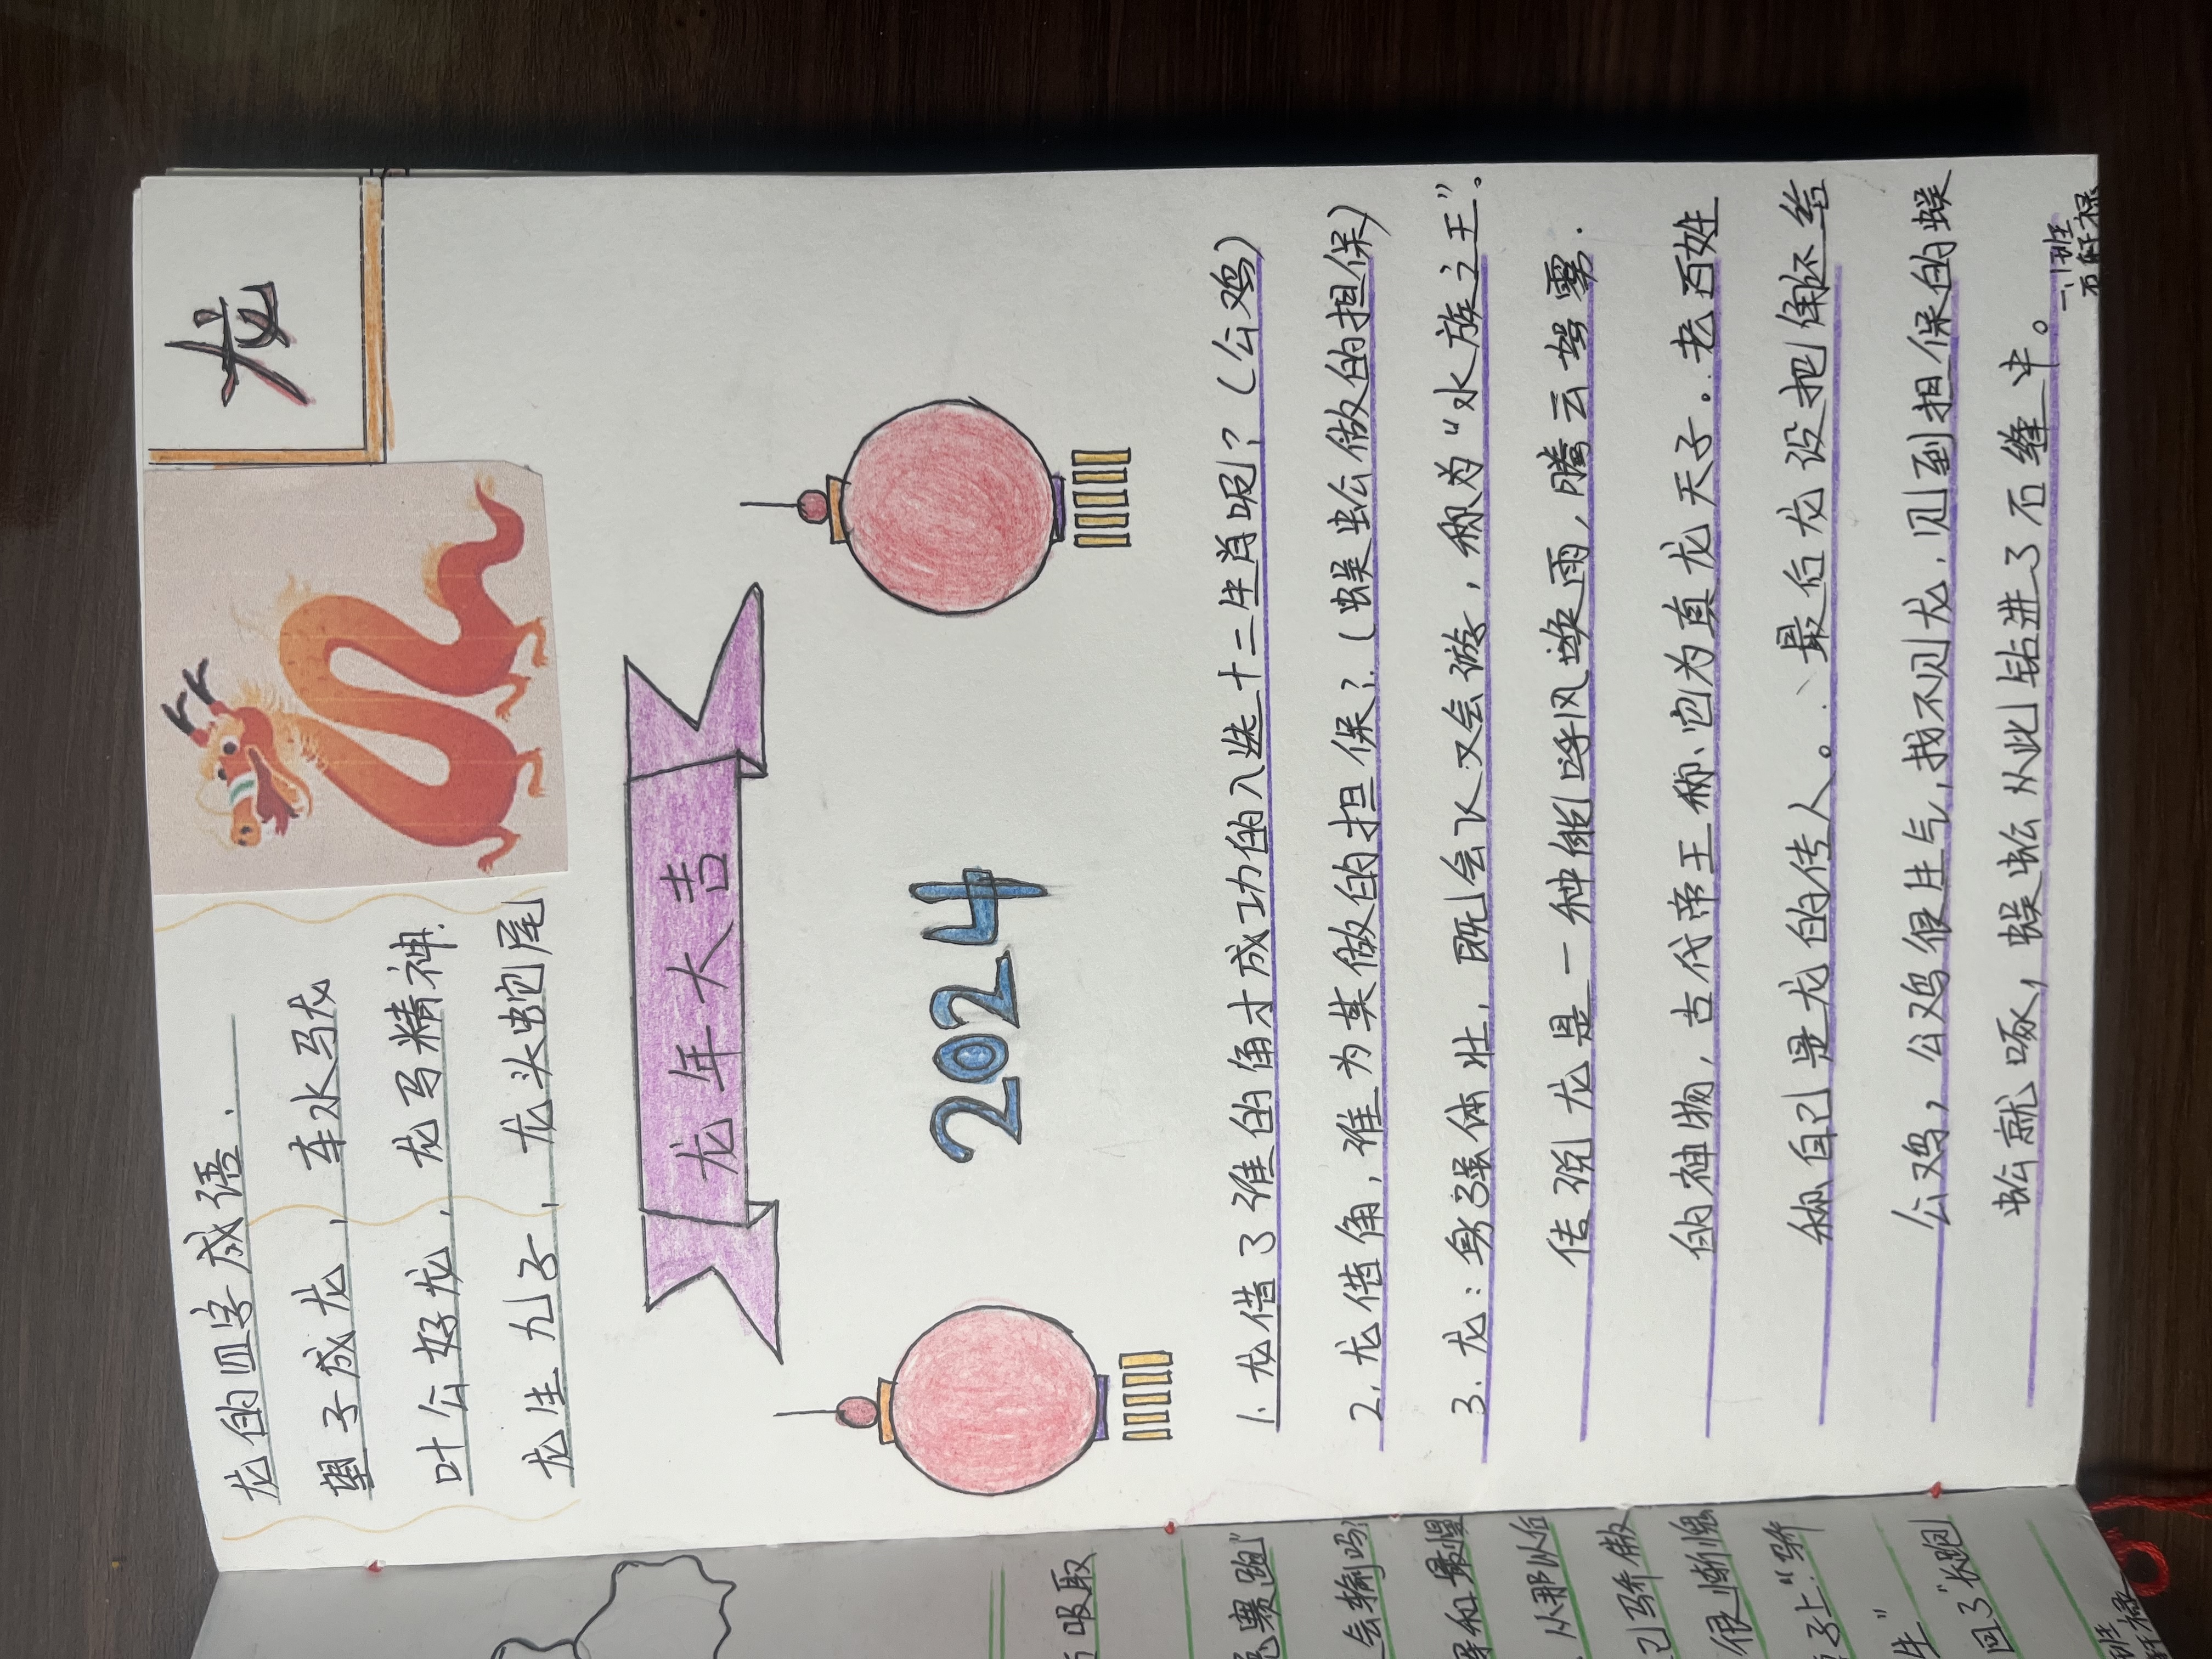 龙
龙的四字成语.
望子成龙，车水马龙
叶公好龙，龙马精神.
龙生九子，龙头蛇尾
龙年大吉
2024
1.龙借了谁的角才成功的入选十二生肖呢？（公鸡）
2.龙借角，谁为其做的担保？（蜈蚣做的担保）
3.龙：身强体壮，既会飞又会游，称为“水族之王”。
传说龙是一种能呼风唤雨，腾云驾雾.
的神物，古代帝王称它为真龙天子.老百姓
称自己是龙的传人。最后龙没把角还给
公鸡，公鸡很生气，找不见龙，见到担保的蜈
蚣就啄，蜈蚣从此钻进了石缝中。
吸取
赛跑”
会输吗？
和最慢
从那以后
己骄傲
很惭愧
子上“骄
生”
回了“长跑